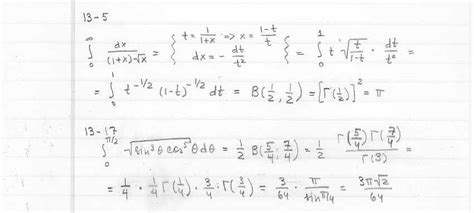 13-5
∫₀^∞ dx/((1+x)√x) = { t = 1/(1+x) => x = (1-t)/t ; dx = - dt/t² } = ∫₀¹ t √(t/(1-t)) · dt/t² =
= ∫₀¹ t^(-1/2) (1-t)^(-1/2) dt = B(1/2, 1/2) = [Γ(1/2)]² = π
13-17
∫₀^(π/2) √(sin³θ cos⁵θ) dθ = 1/2 B(5/4, 7/4) = 1/2 Γ(5/4) Γ(7/4) / Γ(3) =
= 1/4 · 1/4 Γ(1/4) · 3/4 · Γ(3/4) = 3/64 · π/(sin π/4) = 3π√2/64